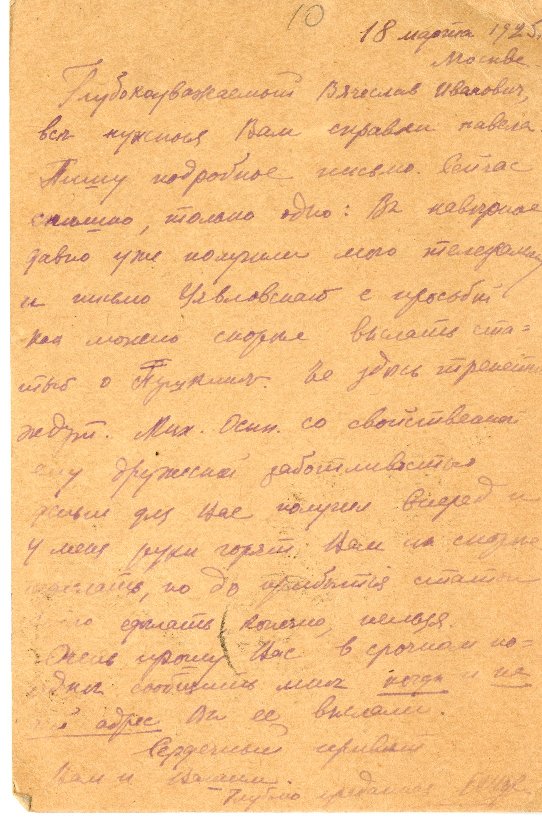 10
18 марта 1925.
Москва
Глубокоуважаемый Вячеслав Иванович,
все нужныя Вам справки навела.
Пишу подробное письмо. Сейчас
спешно, только одно: Вы наверное
давно уже получили мою телеграмму
и письмо Цявловскаго с просьбой
как можно скорее выслать ста-
тью о Пушкине. Ее здесь трепетно
ждут. Мих. Осип. со свойственной
ему дружеской заботливостью
деньги для Вас получил вперед и
у меня руки горят Вам их скорее
выслать, но до прибытия статьи
этого сделать конечно, нельзя.
Очень прошу Вас в срочном по-
рядке сообщить мне когда и на
адрес Вы ее выслали.
Сердечный привет
Вам и Вашим.
Глубоко преданная